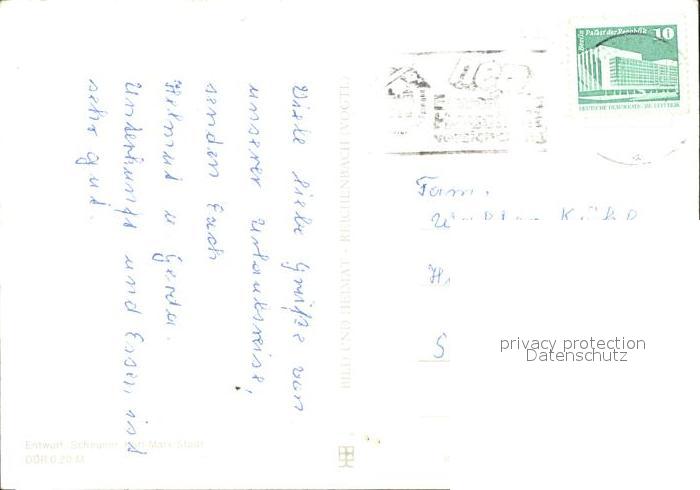 Viele liebe Grüße von
unserer Urlaubsreise,
senden Euch
Helmut u Gerda.
Unterkunft und Essen ist
sehr gut.
BILD UND HEIMAT · REICHENBACH (VOGTL
Entwurf: Scheuner, Karl-Marx-Stadt
DDR 0,20 M
Berlin Palast der Republik 10
DEUTSCHE DEMOKRATISCHE REPUBLIK
Fam.
privacy protection
Datenschutz